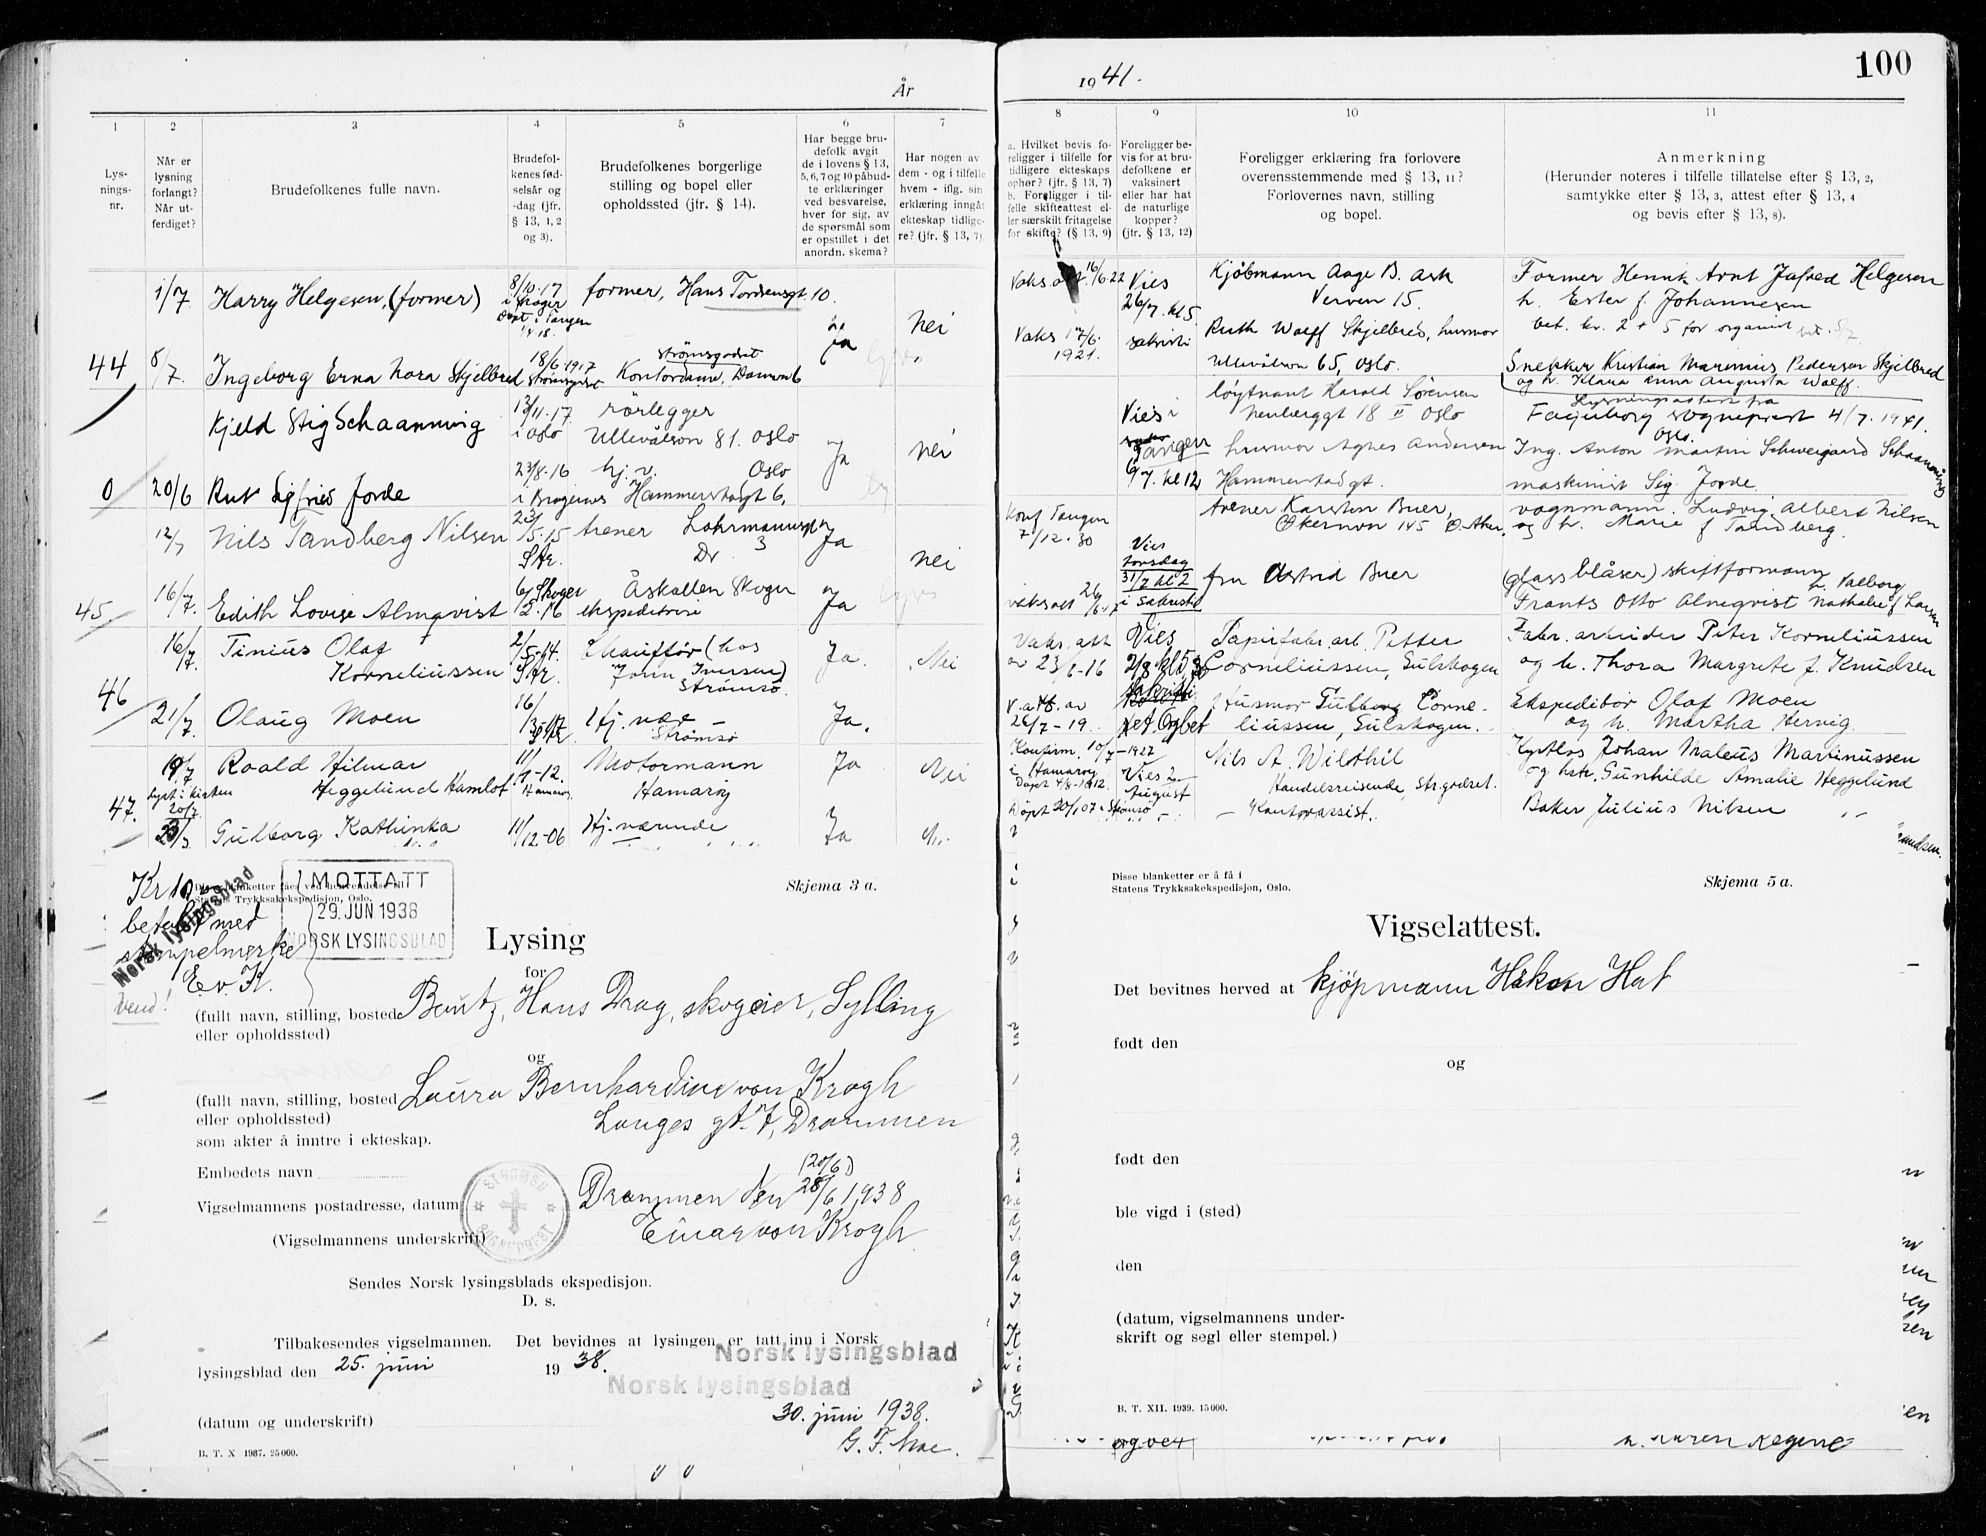 År
1941.
100
1
2
3
4
5
6
7
8
9
10
11
Lys-
nings-
nr.
Når er
lysning
forlangt?
Når ut-
ferdiget?
Brudefolkenes fulle navn.
Brudefol-
kenes fød-
selsår og
-dag (jfr.
§ 13, 1, 2
og 3).
Brudefolkenes borgerlige
stilling og bopel eller
opholdssted (jfr. § 14).
Har begge bru-
defolk avgit
de i lovens § 13,
5, 6, 7 og 10 påbud-
te erklæringer
ved besvarelse,
hver for sig, av
de spørsmål som
er opstillet i det
anordn. skema?
Har nogen av
dem - og i tilfelle
hvem - iflg. sin
erklæring inngått
ekteskap tidlige-
re? (jfr. § 13, 7).
a. Hvilket bevis fo-
religger i tilfelle for
tidligere ekteskaps
ophør? (jfr. § 13, 7)
b. Foreligger i til-
felle skifteattest el-
ler særskilt fritagelse
for skifte? (§ 13, 9)
Foreligger be-
vis for at bru-
defolkene er
vaksinert
eller har hat
de naturlige
kopper?
(jfr. § 13, 12)
Foreligger erklæring fra forlovere
overensstemmende med § 13, 11?
Forlovernes navn, stilling
og bopel.
Anmerkning
(Herunder noteres i tilfelle tillatelse efter § 13, 2,
samtykke efter § 13, 3, attest efter § 13, 4
og bevis efter § 13, 8).
1/7. Harry Helgesen, (former) 8/10.17 former, Hans Tordsensgt. 10. Ja Nei
16/6.22 Vies 26/7. kl 5. sakristi Kjøbmann Aage B. Ark Former Henrik Arnt Jafred Helgesen
Verven 15. h. Ester f. Johannesen
bet. kr. 2 + 5 for organist
Vaks 17/6. 1921. Ruth Wolff Skjelbred, husmor
44 8/7. Ingeborg Erna Nora Skjelbred 18/6.1917 Strømsgodset Kontordame,
Ullevålsvn 65, Oslo. Snekker Kristian Marinius Pedersen Skjelbred
og h. Klara Anna Augusta Wolff.
Kjeld Stig Schaanning 13/11.17. i Oslo rørlegger Ullevålsvn 81. Oslo Ja nei
Vies i Tangen 6/7. kl 12 løytnant Harald Sørensen
Neuberggt 18 II Oslo Lysningsattest fra
Fagerborg sogneprest 4/7.1941.
Oslo.
husmor Agnes Andersen Ing. Anton Martin Schweigaard Schaanning
0 20/6 Rut Sigfried Jorde 23/8.16 i Bragernes hj.v. Oslo Hammerstadgt 6,
Hammerstadgt. maskinist Sig. Jorde.
12/7 Nils Tandberg Nilsen 23/5.15 Str. Lohrmannsgt 3 Dr. Ja nei
Konf Tangen 7/12.30 Karsten Buer, Økernvn 145 Ø. Aker. vognmann. Ludvig Albert Nilsen
og h. Marie f Tandberg.
Vies torsdag 31/7 kl 2 i sakristi
45 16/7. Edith Lovise Almqvist 6/12.16 Skoger Åskollen Skoger ekspeditrise Ja
fru Astrid Buer (glassblåser) skiftformann
Frants Otto Almqvist h. Valborg Nathalie f Larsen
16/7. Tinius Olaf Korneliussen 2/5-14. Str. Chauffør (hos John Iversen) Strømsø. Ja. Nei
Vaks. att av 23/6-16 Vies 2/8 kl 5,30 Sakristi Papirfabr. arb. Petter
Corneliussen, Gulskogen Fabr. arbeider Peter Korneliussen
og h. Thora Margrete f. Knudsen
46 21/7. Olaug Moen 16/3-17 Str Hj. vær Strømsø Ja.
V. att. av 26/7-19. Husmor Gulborg Corne-
liussen, Gulskogen. Ekspeditør Olaf Moen
og h. Martha Hervig.
19/7 Roald Hilmar Heggelund Hamlot 11/1-12. Hamarøy Motormann Hamarøy Ja Nei
lyst i kirken 20/7
Konfirm. 10/7-1927 i Hamarøy Døpt 4/8-1912 Vies 2 August Nils A. Wildhil
Handelsreisende, Str.godset. Johan Maleus Martinussen
og hst. Gunhilde Amalie Heggelund
47. 23/7 Gulborg Kathinka 11/12-06 Hj. værende Ja
Døpt 20/1 07 i Strømsø Kontorassist. Baker Julius Nilsen
Kr 10,-
betalt med
stempelmerke
E. v. K.
Vend!
Norsk lysingsblad
MOTTATT
29. JUN 1938
NORSK LYSINGSBLAD
Disse blanketter fåes ved henvendelse til
Statens Trykksakekspedisjon, Oslo.
Skjema 3 a.
Lysing
for
(fullt navn, stilling, bosted
eller opholdssted)
Bentz, Hans Drag, skogeier, Sylling
og
(fullt navn, stilling, bosted
eller opholdssted)
Laura Bernhardine von Krogh
Langes gt. 7, Drammen
som akter å inntre i ekteskap.
Embedets navn
(20/6)
Vigselmannens postadresse, datum Drammen den 28/6 1938
STRØMSØ SOGNEPREST
(Vigselmannens underskrift) Einar von Krogh
Sendes Norsk lysingsblads ekspedisjon.
D. s.
Tilbakesendes vigselmannen. Det bevidnes at lysingen er tatt inn i Norsk
lysingsblad den 25. juni 1938.
Norsk lysingsblad
Norsk lysingsblad
30. juni 1938.
(datum og underskrift) G. F. Moe.
B. T. X 1937. 25000.
Disse blanketter er å få i
Statens Trykksakekspedisjon, Oslo.
Skjema 5 a.
Vigselattest.
Det bevitnes herved at kjøpmann Håkon Hat
født den
og
født den
ble vigd i (sted)
den
(datum, vigselmannens under-
skrift og segl eller stempel.)
B. T. XII. 1939. 15000.